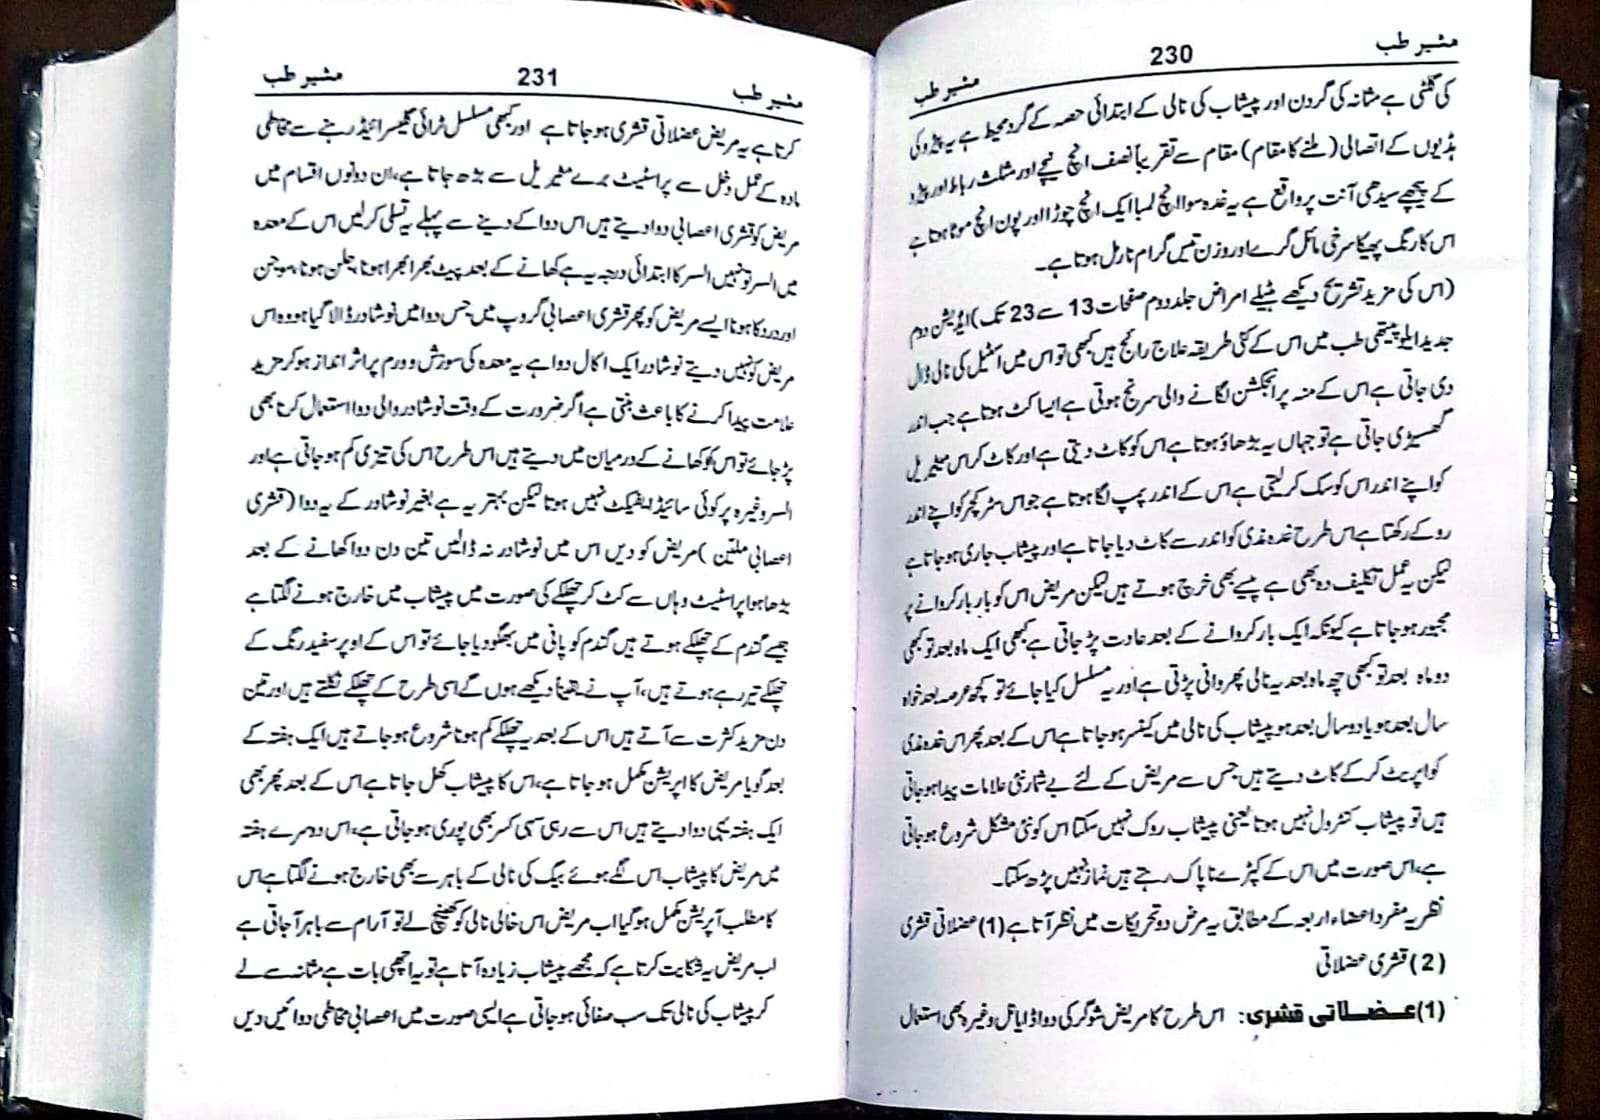 مشیر طب 230 مشیر طب
کی گلٹی ہے مثانہ کی گردن اور پیشاب کی نالی کے ابتدائی حصہ کے گرد محیط ہے یہ پیڑو کی
ہڈیوں کے اتصالی (ملنے کا مقام) مقام سے تقریباً نصف انچ نیچے اور مثلث رباط اور پیڑو
کے پیچھے سیدھی آنت پر واقع ہے یہ غدہ سوا انچ لمبا ایک انچ چوڑا اور پون انچ موٹا ہوتا ہے
اس کا رنگ پھیکا سرخی مائل گرے اور وزن تیس گرام نارمل ہوتا ہے۔
(اس کی مزید تشریح دیکھے ٹیبلے امراض جلد دوم صفحات 13 سے 23 تک) ایڈیشن دوم
جدید ایلوپیتھی طب میں اس کے کئی طریقہ علاج رائج ہیں کبھی تو اس میں اسٹیل کی نالی ڈال
دی جاتی ہے اس کے منہ پر انجکشن لگانے والی سرنج ہوتی ہے ایسا کٹ ہوتا ہے جب اندر
گھسیڑی جاتی ہے تو جہاں یہ بڑھاؤ ہوتا ہے اس کو کاٹ دیتی ہے اور کاٹ کر اس میٹیریل
کو اپنے اندر اس کو سک کر لیتی ہے اس کے اندر پمپ لگا ہوتا ہے جو اس سٹرکچر کو اپنے اندر
روکے رکھتا ہے اس طرح غدہ مذی کو اندر سے کاٹ دیا جاتا ہے اور پیشاب جاری ہو جاتا ہے
لیکن یہ عمل تکلیف دہ بھی ہے پیسے بھی خرچ ہوتے ہیں لیکن مریض اس کو بار بار کروانے پر
مجبور ہو جاتا ہے کیونکہ ایک بار کروانے کے بعد عادت پڑ جاتی ہے کبھی ایک ماہ بعد تو کبھی
دو ماہ بعد تو کبھی چھ ماہ بعد یہ نالی پھروانی پڑتی ہے اور یہ مسلسل کیا جائے تو کچھ عرصہ بعد خواہ
سال بعد ہو یا دو سال بعد ہو پیشاب کی نالی میں کینسر ہو جاتا ہے اس کے بعد پھر اس غدہ مذی
کو اپریٹ کر کے کاٹ دیتے ہیں جس سے مریض کے لئے بے شمار نئی علامات پیدا ہو جاتی
ہیں تو پیشاب کنٹرول نہیں ہوتا یعنی پیشاب روک نہیں سکتا اس کو نئی مشکل شروع ہو جاتی
ہے، اس صورت میں اس کے کپڑے ناپاک رہتے ہیں نماز نہیں پڑھ سکتا۔
نظریہ مفرد اعضاء اربعہ کے مطابق یہ مرض دو تحریکات میں نظر آتا ہے (1) عضلاتی قشری
(2) قشری عضلاتی
(1) عضلاتی قشری: اس طرح کا مریض شوگر کی دوا ڈایاٹل وغیرہ بھی استعمال
مشیر طب 231 مشیر طب
کرتا ہے یہ مریض عضلاتی قشری ہو جاتا ہے اور کبھی مسلسل ٹرائی گلیسرائیڈ رہنے سے مخاطی
مادہ کے عمل دخل سے پراسٹیٹ برے مٹیریل سے بڑھ جاتا ہے، ان دونوں اقسام میں
مریض کو قشری اعصابی دوا دیتے ہیں اس دوا کے دینے سے پہلے یہ تسلی کر لیں اس کے معدہ
میں السر تو نہیں السر کا ابتدائی درجہ یہ ہے کھانے کے بعد پیٹ بھرا بھرا ہونا، جلن ہونا، چبھن
اور درد کا ہونا ایسے مریض کو پھر قشری اعصابی گروپ میں جس دوا میں نوشادر ڈالا گیا ہو وہ اس
مریض کو نہیں دیتے نوشادر ایک اکال دوا ہے یہ معدہ کی سوزش و ورم پر اثر انداز ہو کر مزید
علامت پیدا کرنے کا باعث بنتی ہے اگر ضرورت کے وقت نوشادر والی دوا استعمال کرنا بھی
پڑ جائے تو اس کو کھانے کے درمیان میں دیتے ہیں اس طرح اس کی تیزی کم ہو جاتی ہے اور
السر وغیرہ پر کوئی سائیڈ ایفیکٹ نہیں ہوتا لیکن بہتر یہ ہے بغیر نوشادر کے یہ دوا (قشری
اعصابی ملین) مریض کو دیں اس میں نوشادر نہ ڈالیں تین دن دوا کھانے کے بعد
بڑھا ہوا پراسٹیٹ وہاں سے کٹ کر چھلکے کی صورت میں پیشاب میں خارج ہونے لگتا ہے
جیسے گندم کے چھلکے ہوتے ہیں گندم کو پانی میں بھگو دیا جائے تو اس کے اوپر سفید رنگ کے
چھلکے تیر رہے ہوتے ہیں، آپ نے یقیناً دیکھے ہوں گے اسی طرح کے چھلکے نکلتے ہیں اور تین
دن مزید کثرت سے آتے ہیں اس کے بعد یہ چھلکے کم ہونا شروع ہو جاتے ہیں ایک ہفتہ کے
بعد گویا مریض کا اپریشن مکمل ہو جاتا ہے، اس کا پیشاب کھل جاتا ہے اس کے بعد پھر بھی
ایک ہفتہ یہی دوا دیتے ہیں اس سے رہی سہی کسر بھی پوری ہو جاتی ہے، اس دوسرے ہفتہ
میں مریض کا پیشاب اس لگے ہوئے بیگ کی نالی کے باہر سے بھی خارج ہونے لگتا ہے اس
کا مطلب آپریشن مکمل ہو گیا اب مریض اس خالی نالی کو کھینچ لے تو آرام سے باہر آ جاتی ہے
اب مریض یہ شکایت کرتا ہے کہ مجھے پیشاب زیادہ آتا ہے تو یہ اچھی بات ہے مثانہ سے لے
کر پیشاب کی نالی تک سب صفائی ہو جاتی ہے ایسی صورت میں اعصابی مخاطی دوائیں دیں